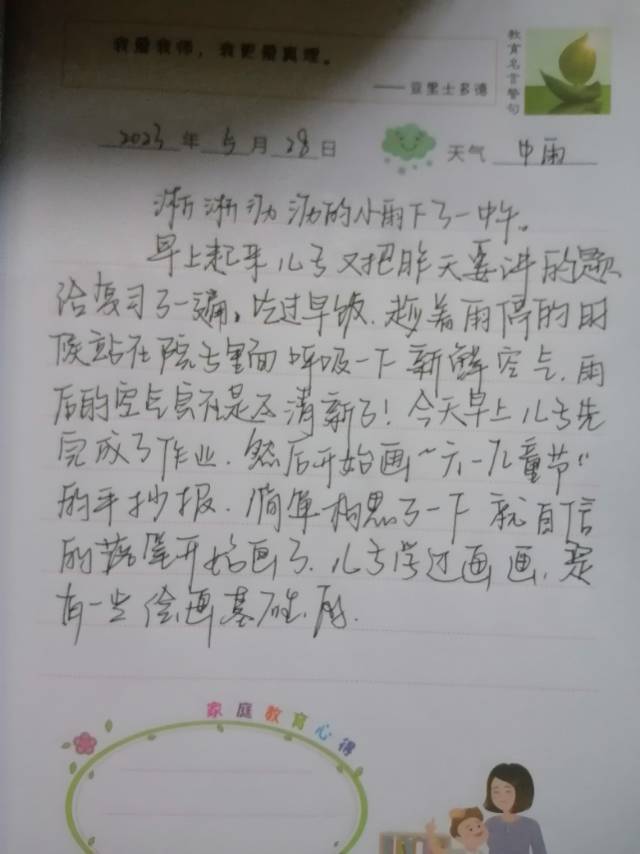 我爱我师，我更爱真理。
——亚里士多德
教育名言警句
2023年5月28日 天气 中雨
淅淅沥沥的小雨下了一中午。
早上起来儿子又把昨天要讲的题
给复习了一遍。吃过早饭.趁着雨停的时
候站在院子里面呼吸一下新鲜空气.雨
后的空气实在是太清新了！今天早上儿子先
完成了作业.然后开始画“六一儿童节”
的手抄报.简单构思了一下就自信
的落笔开始画了.儿子学过画画.是
有一些绘画基础.
家庭教育心得